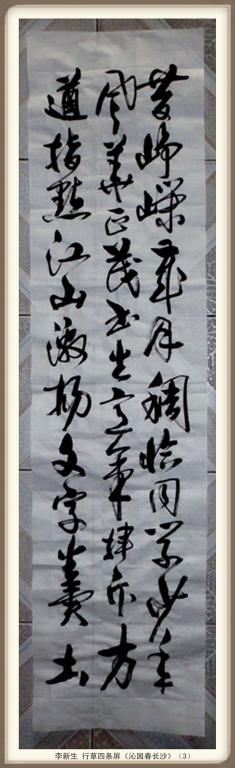 昔峥嵘歲月稠恰同学少年
风華正茂书生意氣揮斥方
遒指點江山激扬文字糞土
李新生 行草四条屏《沁园春长沙》（3）